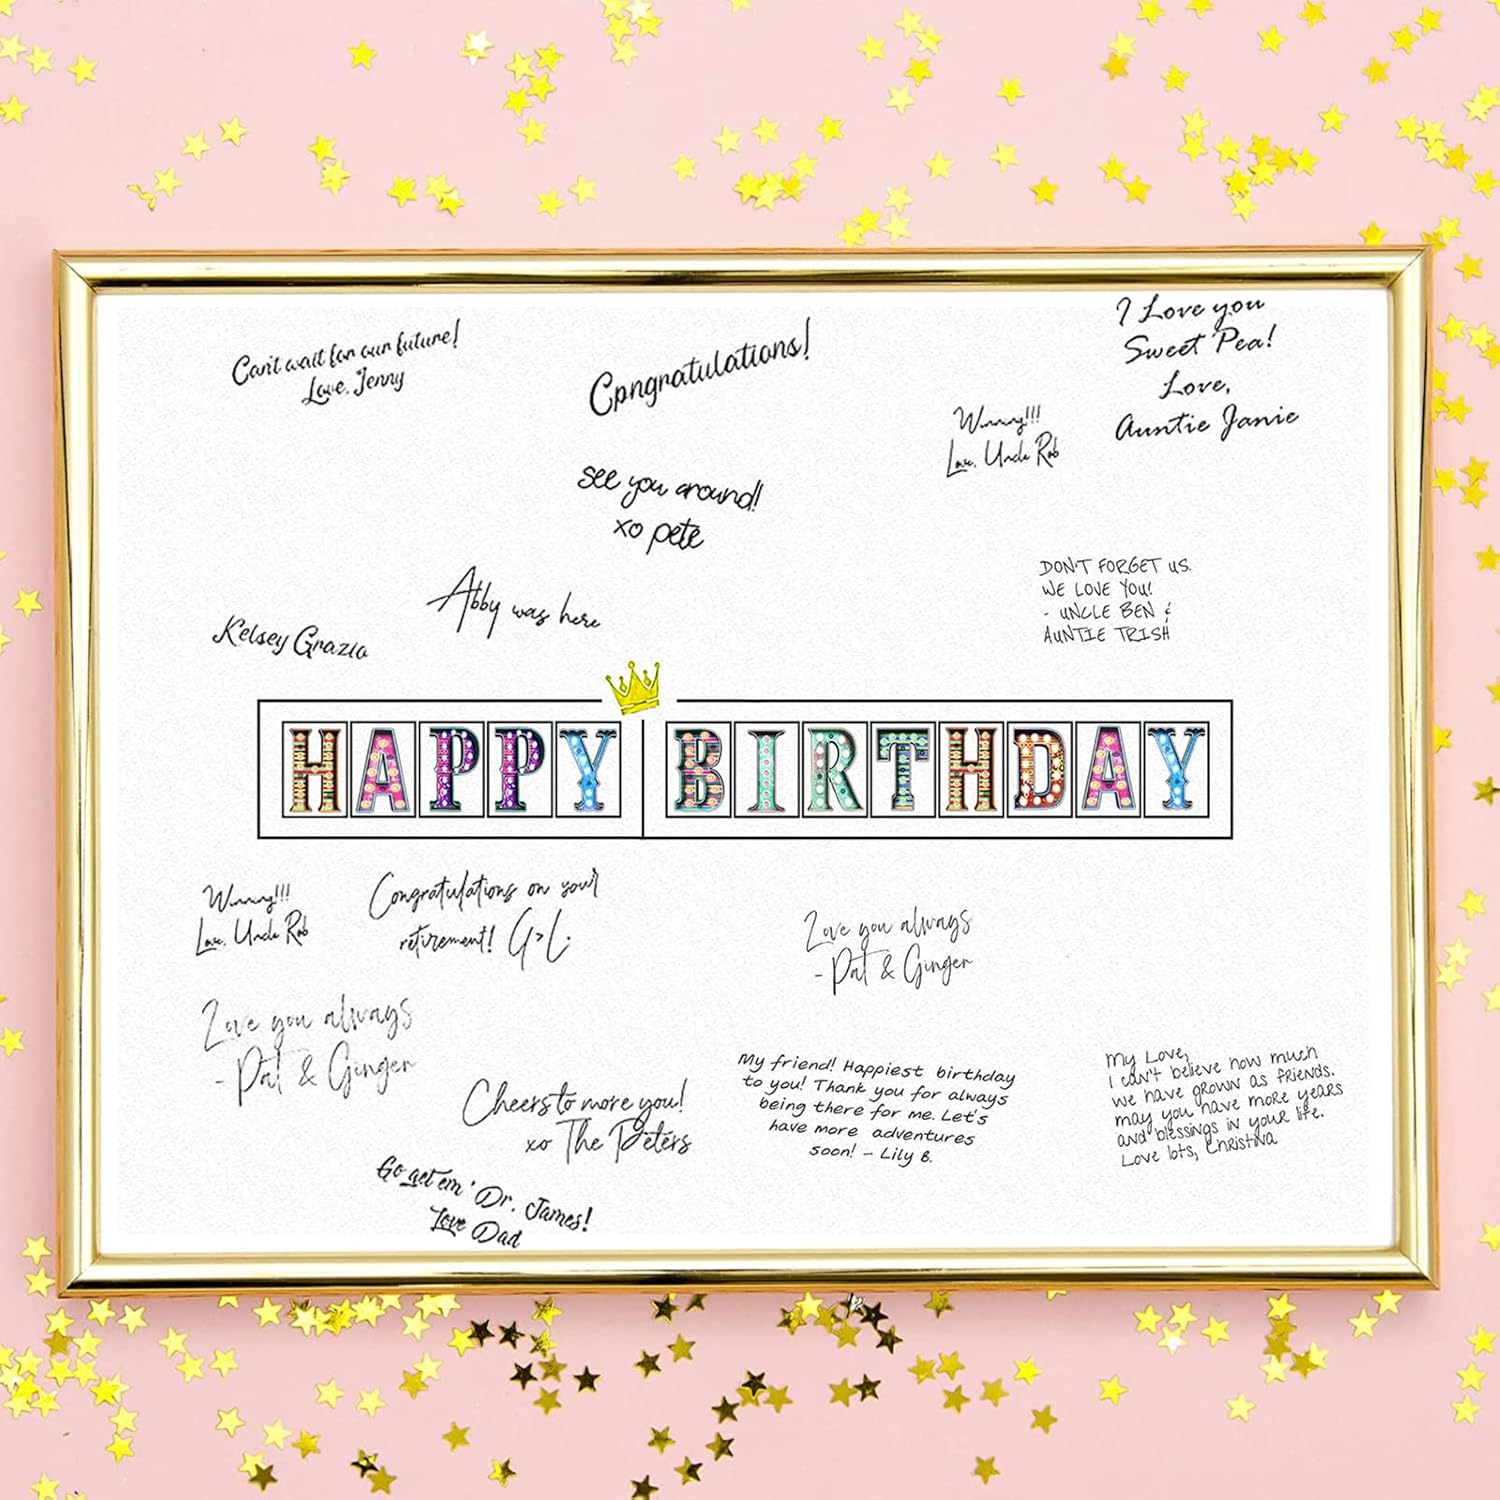 Can't wait for our future!
Love, Jenny
Congratulations!
I Love you
Sweet Pea!
Love,
Auntie Janie
Winning!!!
Love, Uncle Rob
see you around!!
xo pete
DON'T FORGET US.
WE LOVE YOU!
- UNCLE BEN &
AUNTIE TRISH
Abby was here
Kelsey Grazia
HAPPY BIRTHDAY
Winning!!!
Love, Uncle Rob
Congratulations on your
retirement! G>L.
Love you always
-Pat & Ginger
Love you always
-Pat & Ginger
Cheers to more you!
xo The Peters
My friend! Happiest birthday
to you! Thank you for always
being there for me. Let's
have more adventures
soon! - Lily B.
My Love,
I can't believe how much
we have grown as friends.
may you have more years
and blessings in your life.
Love lots, Christina
Go get em' Dr. James!
Love Dad